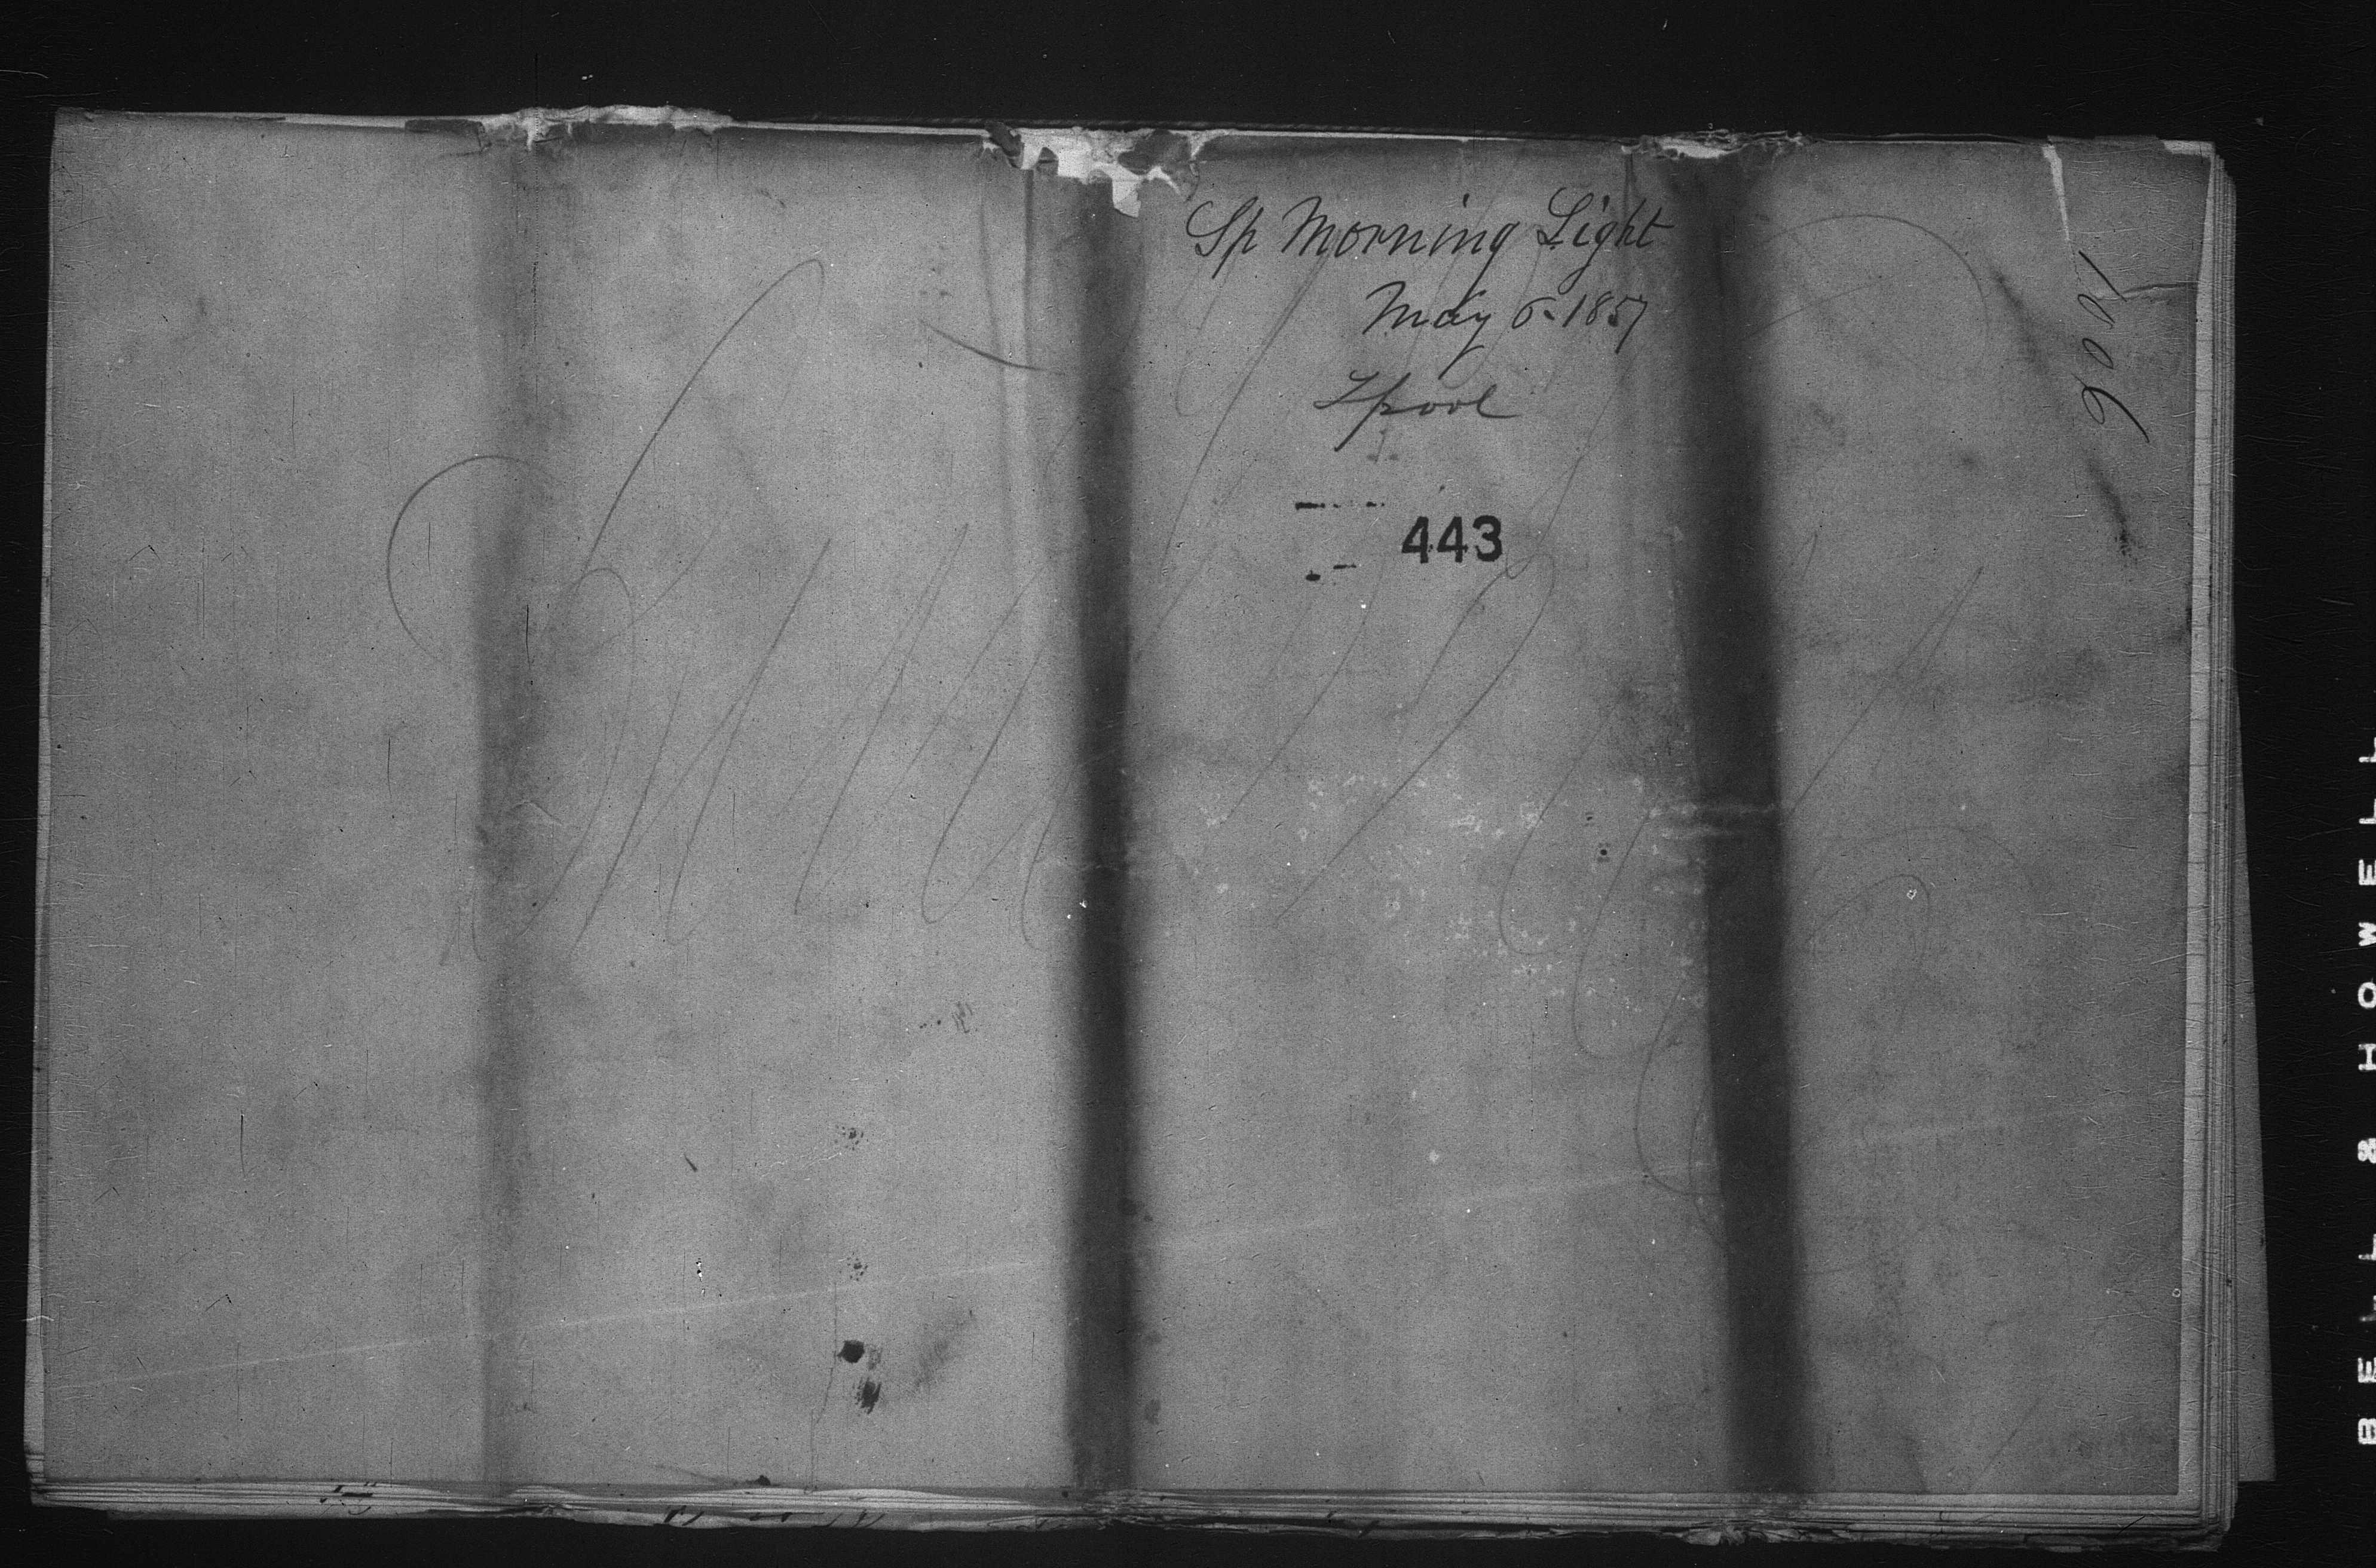 Sp Morning Light
May 6-1857
Lpool
443
1006
BELL & HOWELL